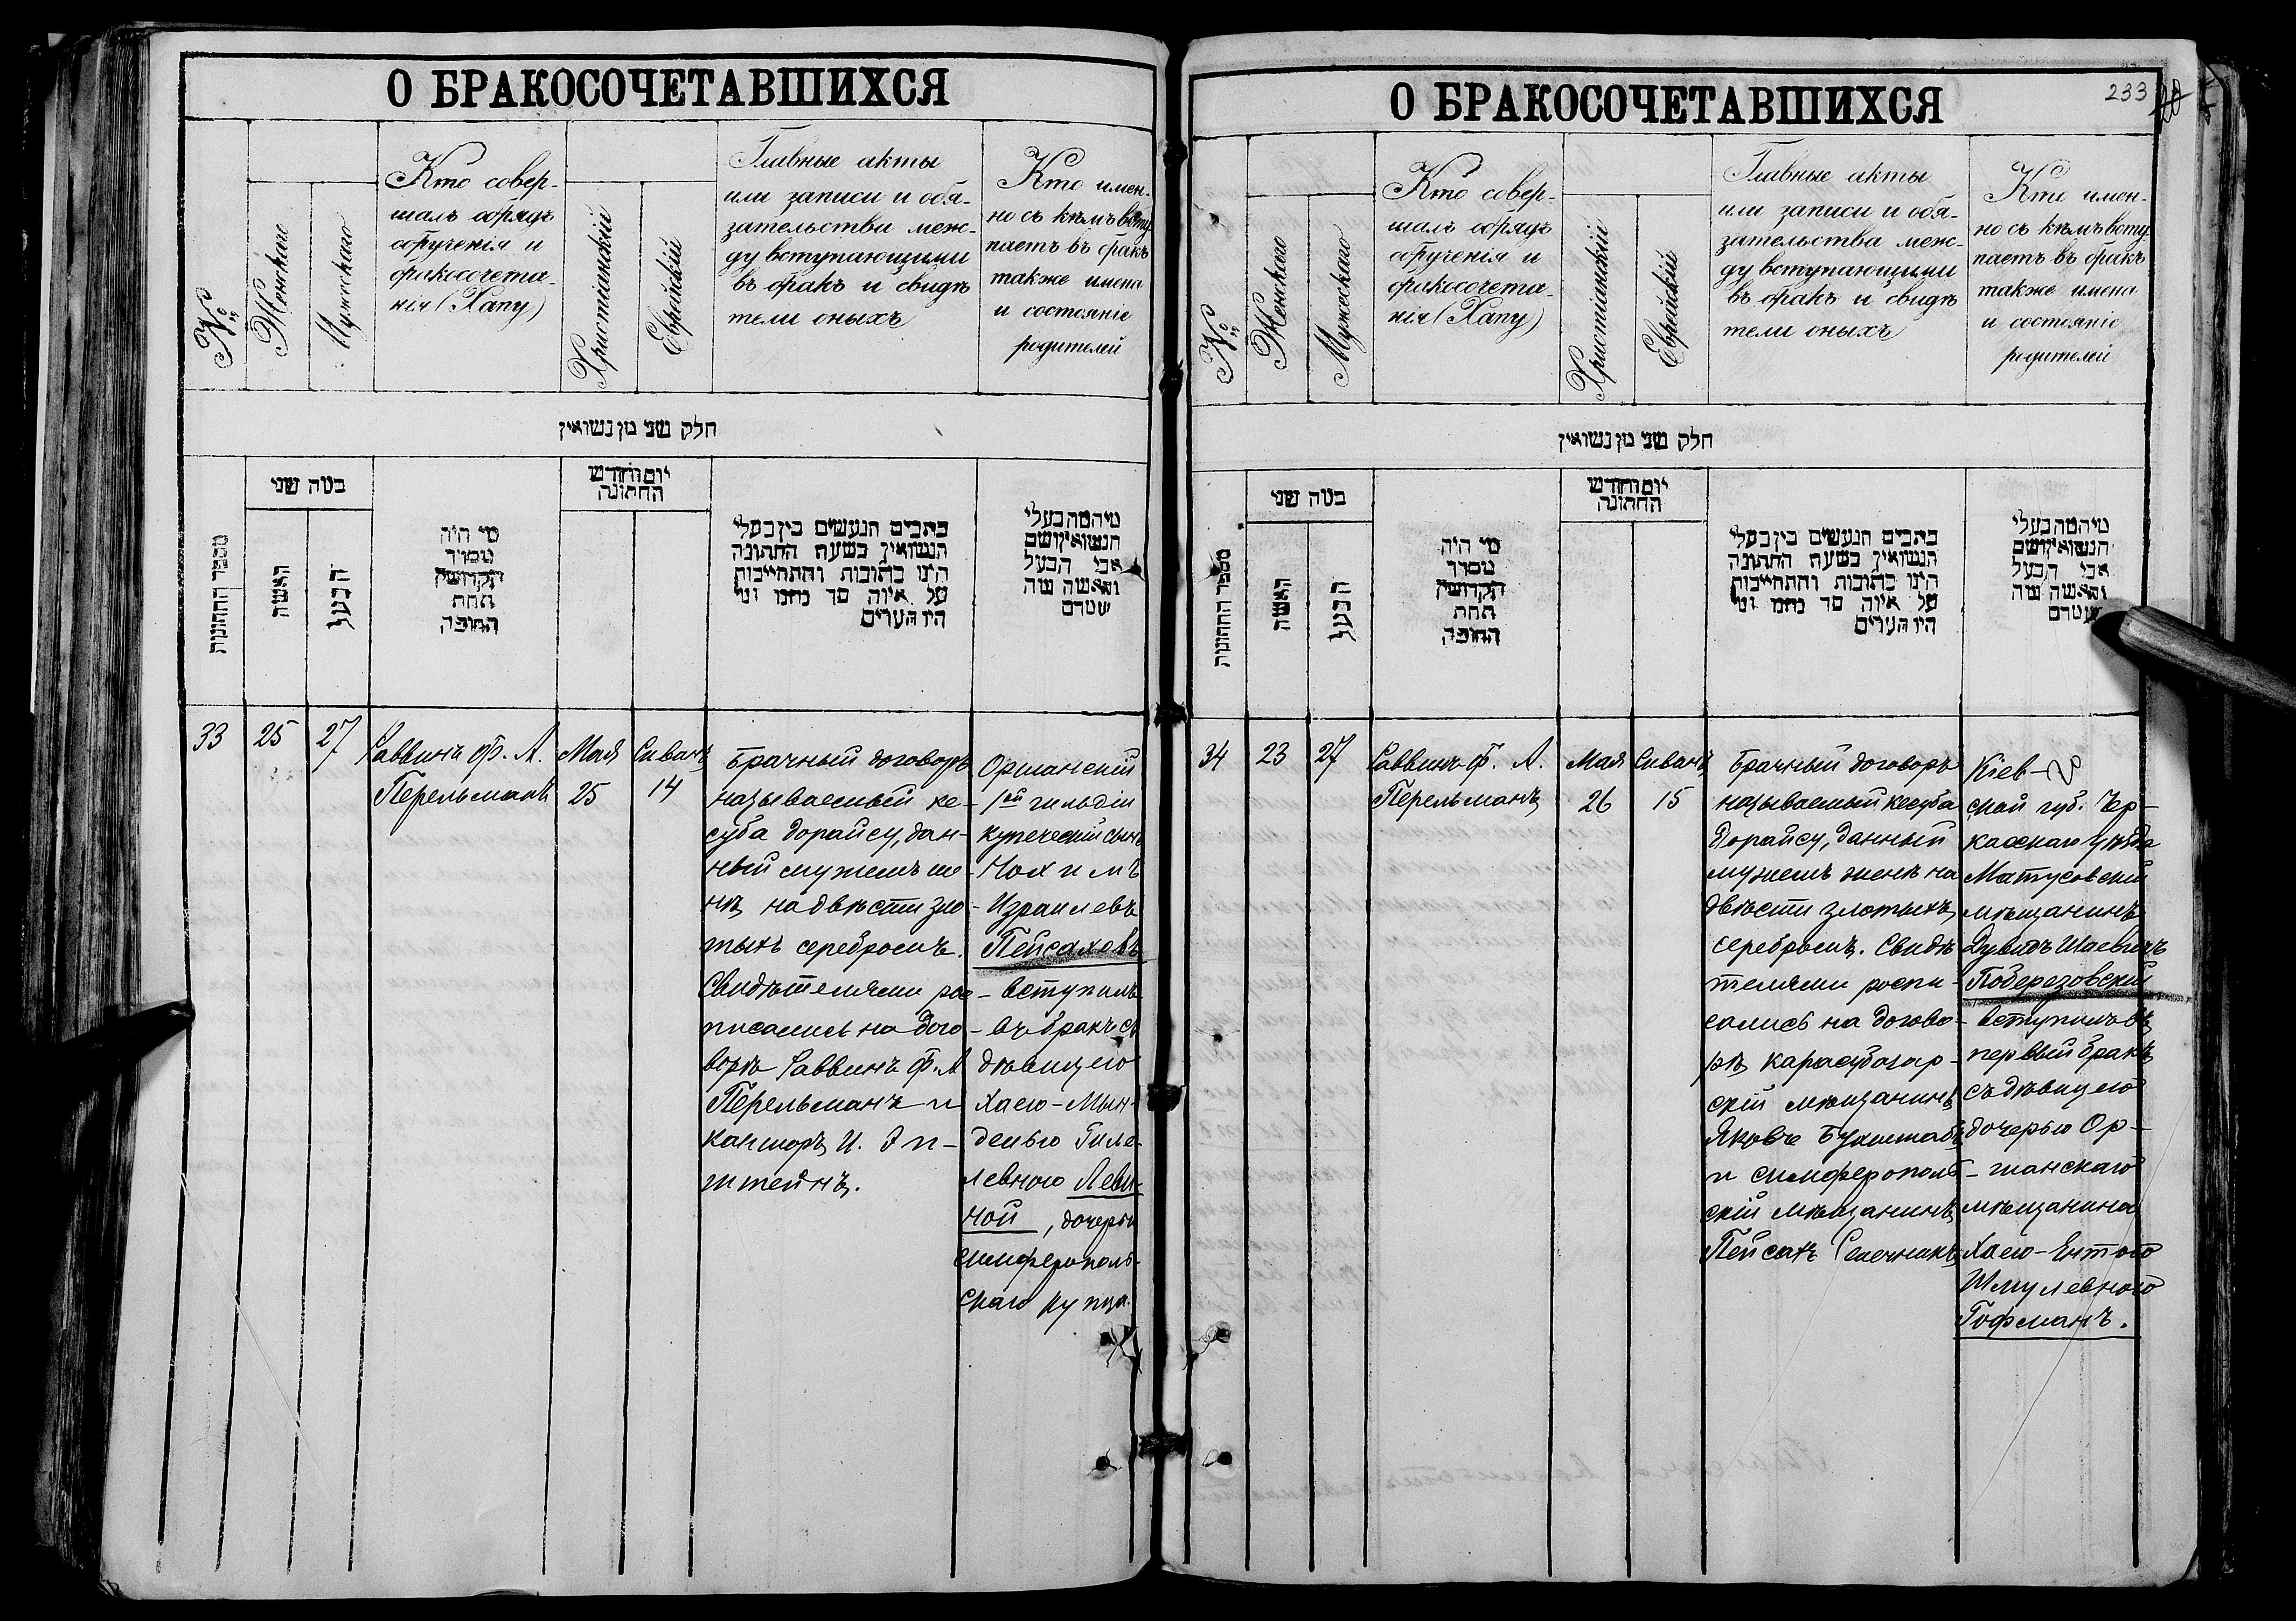 О БРАКОСОЧЕТАВШИХСЯ
№
Женскаго
Мужескаго
Кто совер-
шалъ обрядъ
обрученія и
бракосочета-
нія (Хапу)
Христіанскій
Еврейскій
Главные акты
или записи и обя-
зательства меж-
ду вступающими
въ бракъ и свидѣ
тели оныхъ
Кто имен-
но съ кѣмъ всту
паетъ въ бракъ
также имена
и состояніе
родителей
חלק שני מן נשואין
מספר החתונות
כמה שני
האשה
הבעל
מי היה
מסדר
הקדושין
תחת
החופה
יום וחודש
החתונה
כתבים הנעשים בין בעלי
הנשואין בשעת החתונה
הינו כתובות והתחייבות
על איזה סך נחנו ומי
היו העדים
מיהמה בעלי
הנשואין ושם
אבי הבעל
והאשה ומה
שטרם
33
25
27
Раввинъ Ф. А.
Перельманъ
Мая
25
Сиванъ
14
Брачный договоръ
называемый ке-
суба дорайсу, дан-
ный мужемъ же-
нѣ на двѣсти зло
тыхъ серебромъ.
Свидѣтелями рос
писались на дого
ворѣ Раввинъ Ф. А
Перельманъ и
канторъ И. Эп-
штейнъ.
Оршанскій
1ой гильдіи
купеческій сынъ
Нохимъ
Израилевъ
Пейсаховъ
вступилъ
въ бракъ съ
дѣвицею
Хаею-Мын-
делью Гиле-
левною Леви-
ной, дочерью
симферополь-
скаго купца.
О БРАКОСОЧЕТАВШИХСЯ
233
№
Женскаго
Мужескаго
Кто совер-
шалъ обрядъ
обрученія и
бракосочета-
нія (Хапу)
Христіанскій
Еврейскій
Главные акты
или записи и обя-
зательства меж-
ду вступающими
въ бракъ и свидѣ
тели оныхъ
Кто имен-
но съ кѣмъ всту
паетъ въ бракъ
также имена
и состояніе
родителей
חלק שני מן נשואין
מספר החתונות
כמה שני
האשה
הבעל
מי היה
מסדר
הקדושין
תחת
החופה
יום וחודש
החתונה
כתבים הנעשים בין בעלי
הנשואין בשעת החתונה
הינו כתובות והתחייבות
על איזה סך נחנו ומי
היו העדים
מיהמה בעלי
הנשואין ושם
אבי הבעל
והאשה ומה
שטרם
34
23
27
Раввинъ Ф. А.
Перельманъ
Мая
26
Сиванъ
15
Брачный договоръ
называемый кесуба
дорайсу, данный
мужемъ женѣ на
двѣсти злотыхъ
серебромъ. Свидѣ
телями роспи-
сались на догово-
рѣ карасубазар-
скій мѣщанинъ
Яковъ Бухштабъ
и симферополь-
скій мѣщанинъ
Пейсахъ
Кіев-
ской губ. Чер-
касскаго уѣзда
Матусовскій
мѣщанинъ
Дувидъ Шаевичъ
Поберезовскій
вступилъ въ
первый бракъ
съ дѣвицею
дочерью Ор-
шанскаго
мѣщанина
Хаею-Ентою
Шмулевною
Гофманъ.